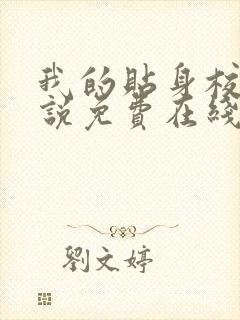 我的貼身校
說免費在綫
劉文婷